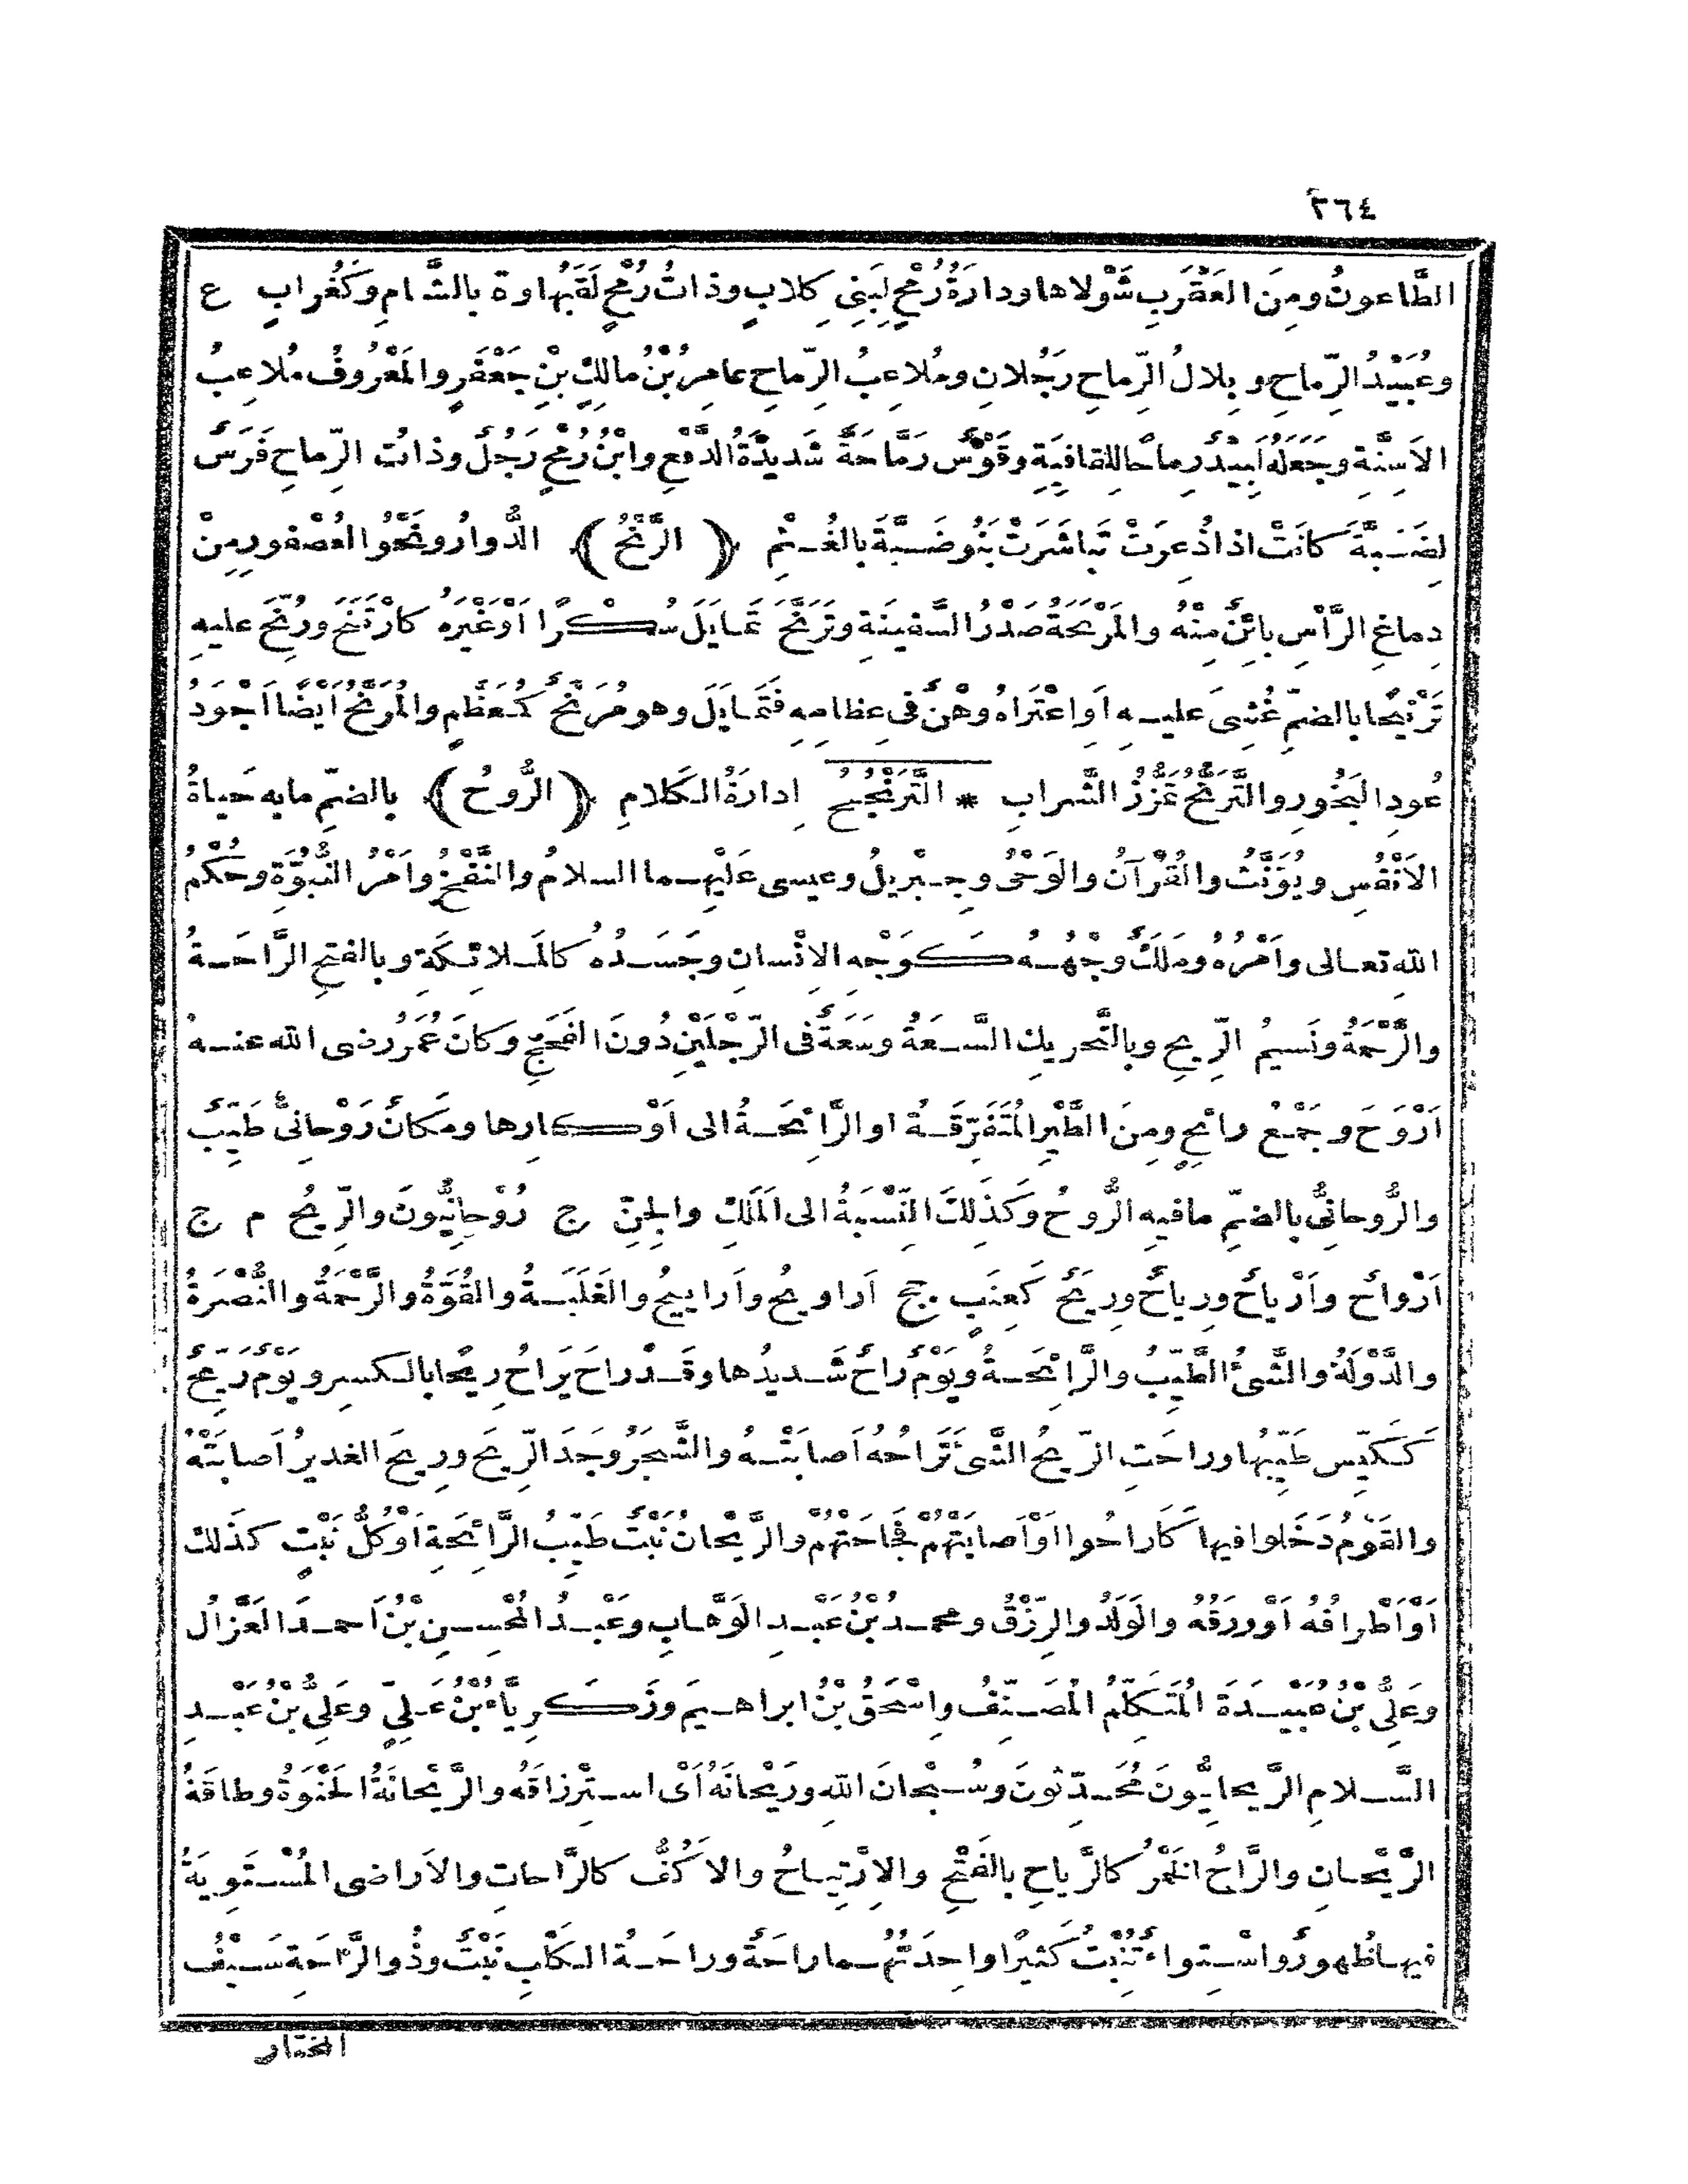 ٢٦٤
الطَّاعونُ ومِنَ العَقْرَبِ شَوْلاها ودارَةُ رُمْحٍ لِبَنِى كِلابٍ وذاتُ رُمْحٍ لَقَبُها وة بالشَّامِ وكَغُرابٍ ع
وعُبَيْدُ الرِّماحِ وبِلالُ الرِّماحِ رَجُلانِ ومُلاعِبُ الرِّماحِ عامِرُ بْنُ مالِكِ بْنِ جَعْفَرٍ والمَعْرُوفُ مُلاعِبُ
الاَسِنَّةِ وجَعَلَهُ لَبِيدٌ رِماحًا للقافِيَةِ وقَوْسٌ رَمَّاحَةٌ شَديدَةُ الدَّفْعِ وابْنُ رُمْحٍ رَجُلٌ وذاتُ الرِّماحِ فَرَسٌ
لِضَبَّةَ كانَتْ اذا ذُعِرَتْ تَباشَرَتْ بَنُو ضَبَّةَ بالغُنْمِ ﴿ الرَّنْحُ ﴾ الدُّوارُ ونَحْوُ العُصْفورِ مِنْ
دِماغِ الرَّأْسِ بائِنٌ مِنْهُ والمَرْنَحَةُ صَدْرُ السَّفينَةِ وتَرَنَّحَ تَمايَلَ سُكْرًا اَوْ غَيْرَهُ كارْتَنَحَ ورُنِّحَ عليهِ
تَرْنيحًا بالضمِّ غُشِىَ عليهِ اَوِ اعْتَراهُ وهْنٌ فى عِظامِهِ فتَمايَلَ وهو مُرَنَّحٌ كمُعَظَّمٍ والمُرَنَّحُ اَيْضًا اَجْوَدُ
عُودِ البَخُورِ والتَّرَنُّحُ تَمَزُّزُ الشَّرابِ * التَّرَنْجُحُ اِدارَةُ الكَلامِ ﴿ الرُّوحُ ﴾ بالضمِّ مابه حَياةُ
الاَنْفُسِ ويُؤَنَّثُ والقُرْآنُ والوَحْىُ وجِبْرِيلُ وعيسى عَلَيْهِما السلامُ والنَّفْخُ واَمْرُ النُّبُوَّةِ وحُكْمُ
اللهِ تعالى واَمْرُهُ ومَلَكٌ وجْهُهُ كَوَجْهِ الاِنْسانِ وجَسَدُهُ كالمَلائِكَةِ وبالفتحِ الرَّاحَةُ
والرَّحْمَةُ ونَسيمُ الرِّيحِ وبالتَّحريكِ السَّعَةُ وسَعَةٌ فى الرِّجْلَيْنِ دُونَ الفَحَجِ وكانَ عُمَرُ رضى الله عنهُ
اَرْوَحَ وجَمْعُ رائِحٍ ومِنَ الطَّيْرِ المُتَفَرِّقَةُ او الرَّائِحَةُ الى اَوْكارِها ومَكانٌ رَوْحانِىٌّ طَيِّبٌ
والرُّوحانِىُّ بالضمِّ مافيه الرُّوحُ وكَذٰلكَ النِّسْبَةُ الى المَلَكِ والجِنِّ ج رُوْحانِيُّونَ والرِّيحُ م ج
اَرْواحٌ واَرْياحٌ ورِياحٌ ورِيَحٌ كَعِنَبٍ جج اَراوِيحُ واَرايِيحُ والغَلَبَةُ والقُوَّةُ والرَّحْمَةُ والنُّصْرَةُ
والدَّوْلَةُ والشَّىْءُ الطَّيِّبُ والرَّائِحَةُ ويَوْمٌ راحٌ شَديدُها وقَدْ راحَ يَراحُ رِيحًا بالكسرِ ويَوْمٌ رَيِّحٌ
كَكَيِّسٍ طَيِّبُها وراحَتِ الرِّيحُ الشَّىْءَ تَراحُهُ اَصابَتْهُ والشَّجَرُ وَجَدَ الرِّيحَ ورِيحَ الغديرُ اَصابَتْهُ
والقَوْمُ دَخَلوا فيها كَاَراحُوا اَوْ اَصابَتْهُمْ فَجاحَتْهُمْ والرَّيْحانُ نَبْتٌ طَيِّبُ الرَّائِحَةِ اَوْ كُلُّ نَبْتٍ كذٰلكَ
اَوْ اَطْرافُهُ اَوْ ورَقُهُ والوَلَدُ والرِّزْقُ ومحمدُ بْنُ عَبْدِ الوَهَّابِ وعَبْدُ المُحْسِنِ بْنُ اَحمدَ الغَزَّالُ
وعَلِىُّ بْنُ عُبَيْدَةَ المُتَكَلِّمُ المُصَنِّفُ واِسْحٰقُ بْنُ ابراهيمَ وزَكَرِيَّاءُ بْنُ عَلِىٍّ وعَلِىُّ بْنُ عَبْدِ
السَّلامِ الرَّيحانِيُّونَ مُحَدِّثُونَ وسُبْحانَ اللهِ ورَيْحانَهُ اَىْ اسْتِرْزاقَهُ والرَّيْحانَةُ الحَنْوَةُ وطاقَةُ
الرَّيْحانِ والرَّاحُ الخَمْرُ كالرَّياحِ بالفَتْحِ والاِرْتِياحُ والاَكُفُّ كالرَّاحاتِ والاَراضى المُسْتَوِيَةُ
فيها ظُهورٌ واسْتِواءٌ تُنْبِتُ كَثيرًا واحِدَتُهُما راحَةٌ وراحَةُ الكَلْبِ نَبْتٌ وذُو الرَّاحَةِ سَيْفُ
المختار